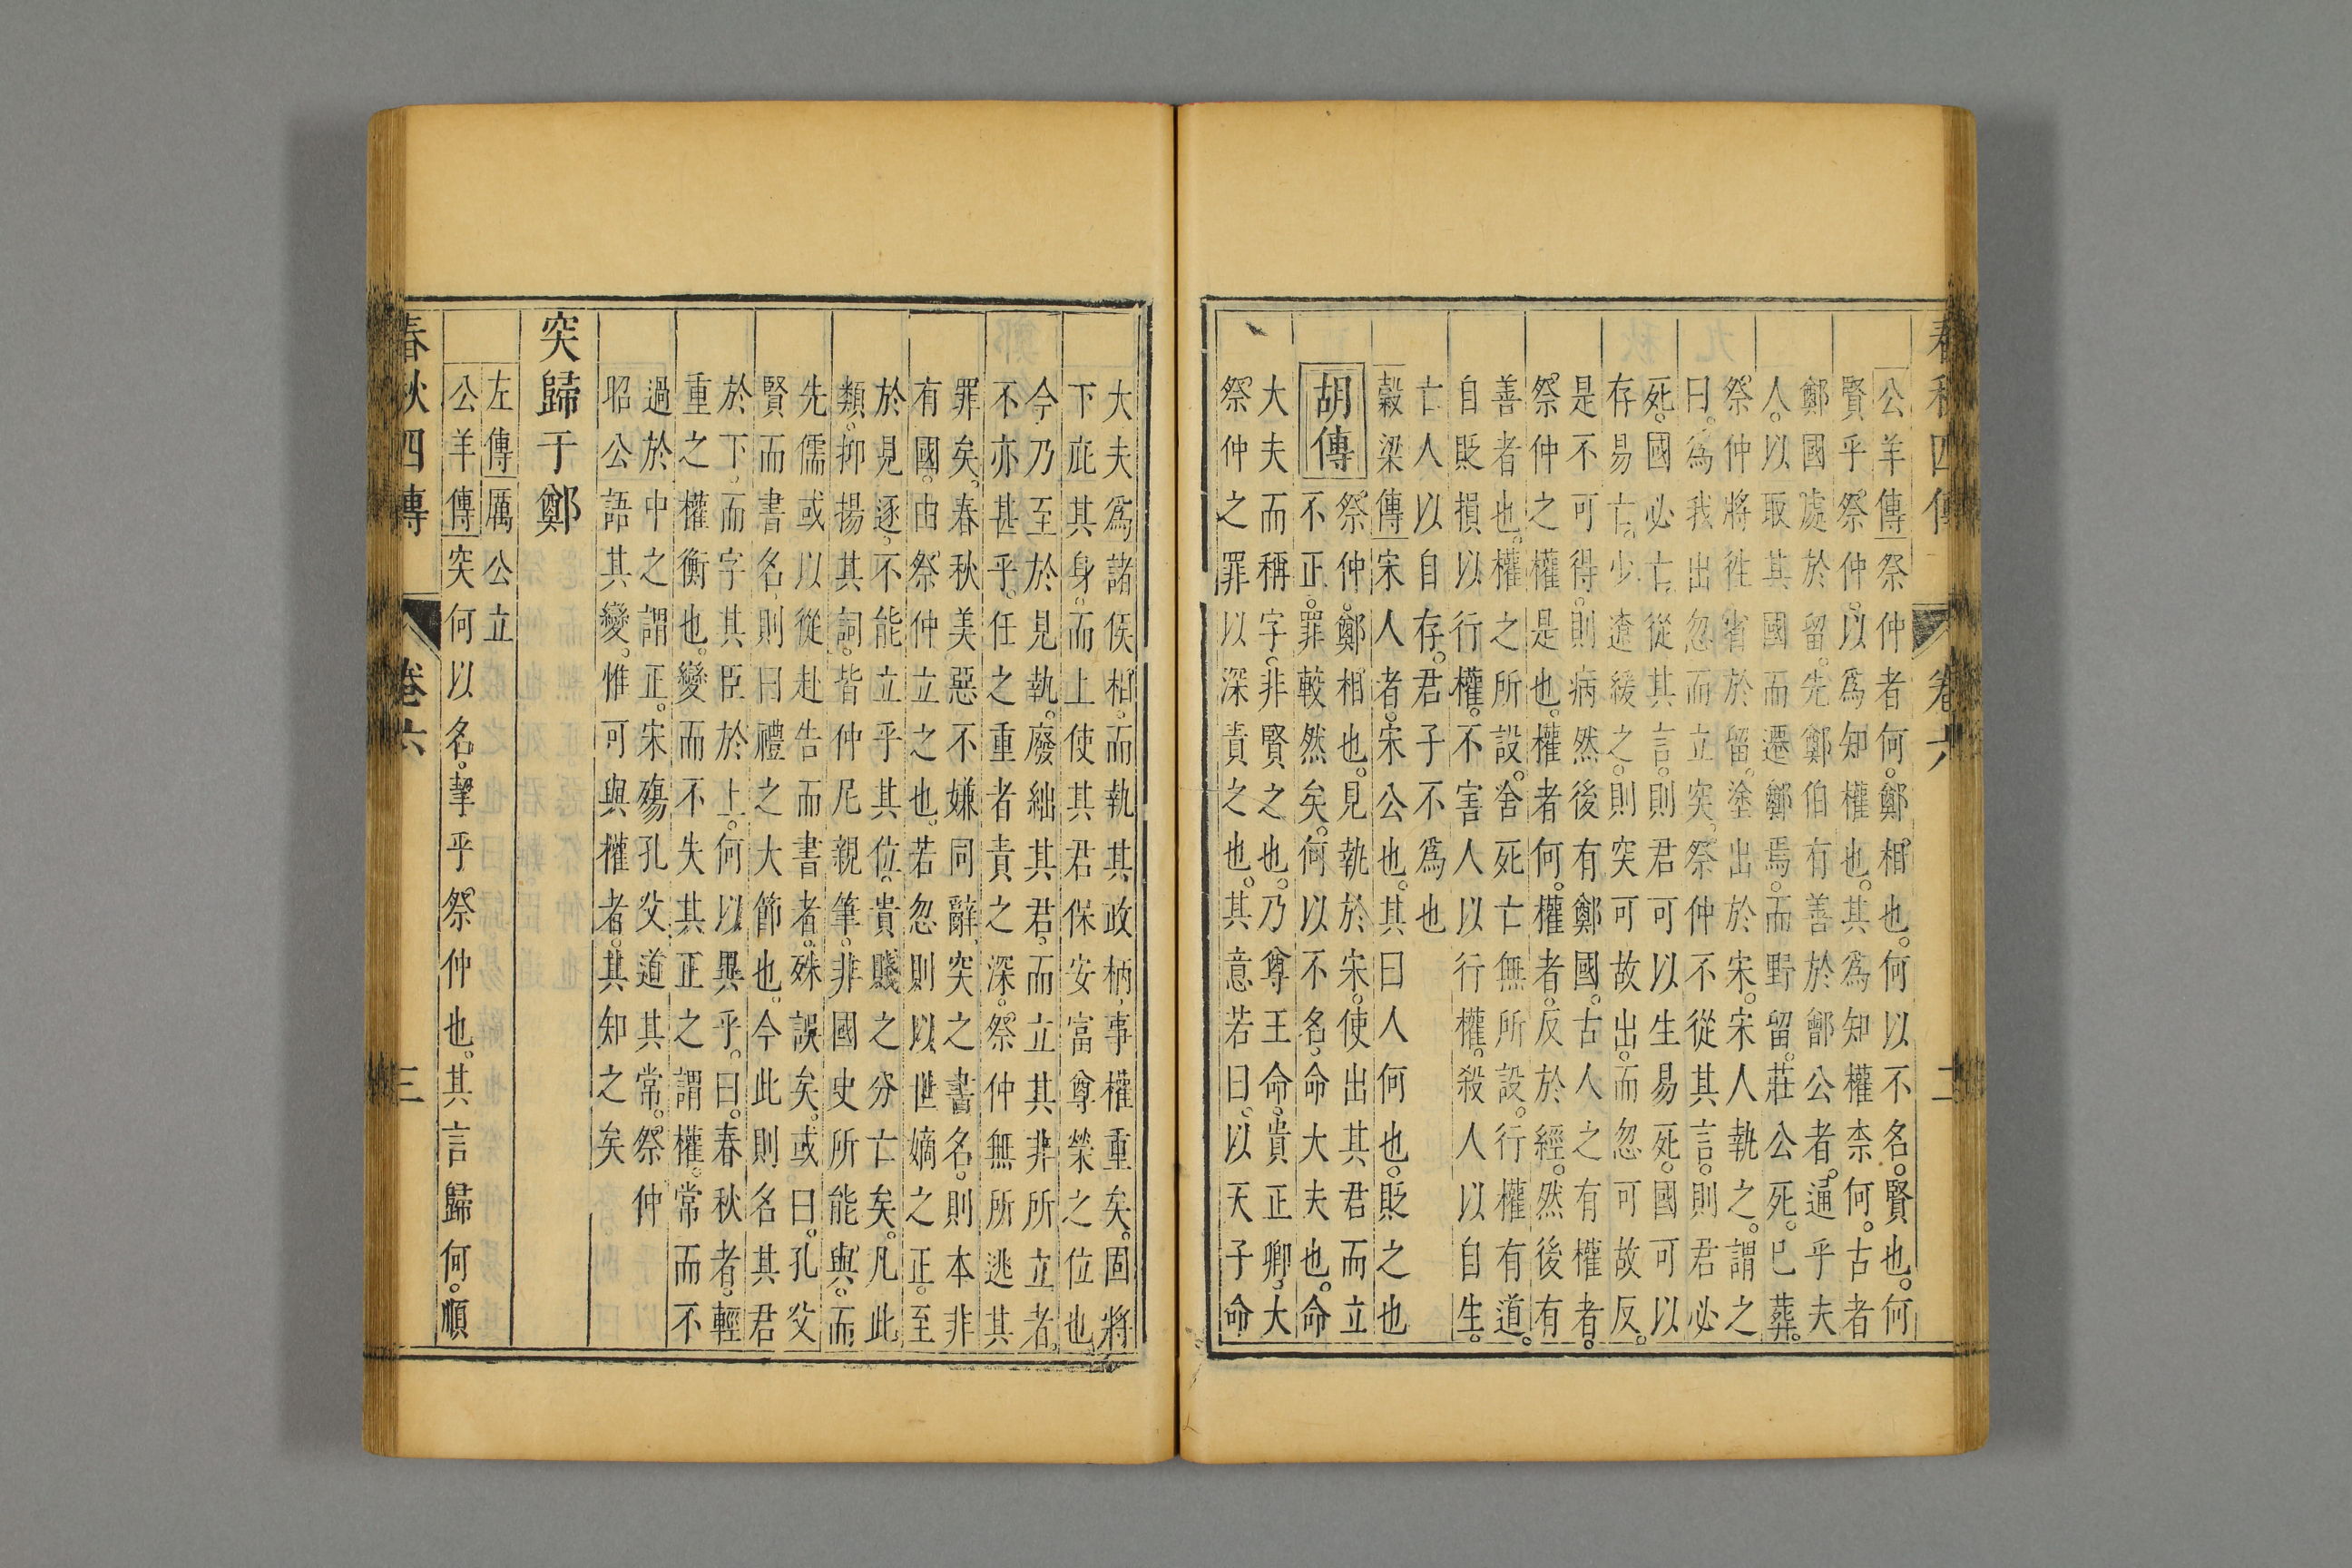 春秋四傳 卷六 二
公羊傳祭仲者何。鄭相也。何以不名。賢也。何
賢乎祭仲。以爲知權也。其爲知權柰何。古者
鄭國處於留。先鄭伯有善於鄶公者。通乎夫
人。以取其國而遷鄭焉。而野留。莊公死。已葬。
祭仲將徃省於留。塗出於宋。宋人執之。謂之
曰。爲我出忽而立突。祭仲不從其言。則君必
死。國必亡。從其言。則君可以生易死。國可以
存易亡。少遼緩之。則突可故出。而忽可故反。
是不可得。則病然後有鄭國。古人之有權者。
祭仲之權是也。權者何。權者。反於經。然後有
善者也。權之所設。舍死亡無所設。行權有道。
自貶損以行權。不害人以行權。殺人以自生。
亡人以自存。君子不爲也
穀梁傳宋人者。宋公也。其曰人何也。貶之也
胡傳 祭仲。鄭相也。見執於宋。使出其君而立
不正。罪較然矣。何以不名。命大夫也。命
大夫而稱字。非賢之也。乃尊王命。貴正卿。大
祭仲之罪以深責之也。其意若曰。以天子命
大夫爲諸侯相。而執其政柄。事權重矣。固將
下庇其身。而上使其君保安富尊榮之位也。
今乃至於見執。廢絀其君。而立其非所立者。
不亦甚乎。任之重者責之深。祭仲無所逃其
罪矣。春秋美惡不嫌同辭。突之書名。則本非
有國。由祭仲立之也。若忽則以世嫡之正。至
於見逐。不能立乎其位。貴賤之分亡矣。凡此
類。抑揚其詞。皆仲尼親筆。非國史所能與。而
先儒或以從赴告而書者。殊誤矣。或曰。孔父
賢而書名。則曰禮之大節也。今此則名其君
於下。而字其臣於上。何以異乎。曰。春秋者。輕
重之權衡也。變而不失其正之謂權。常而不
過於中之謂正。宋殤孔父道其常。祭仲
昭公語其變。惟可與權者。其知之矣
突歸于鄭
左傳厲公立
公羊傳突何以名。挈乎祭仲也。其言歸何。順
春秋四傳 卷六 三